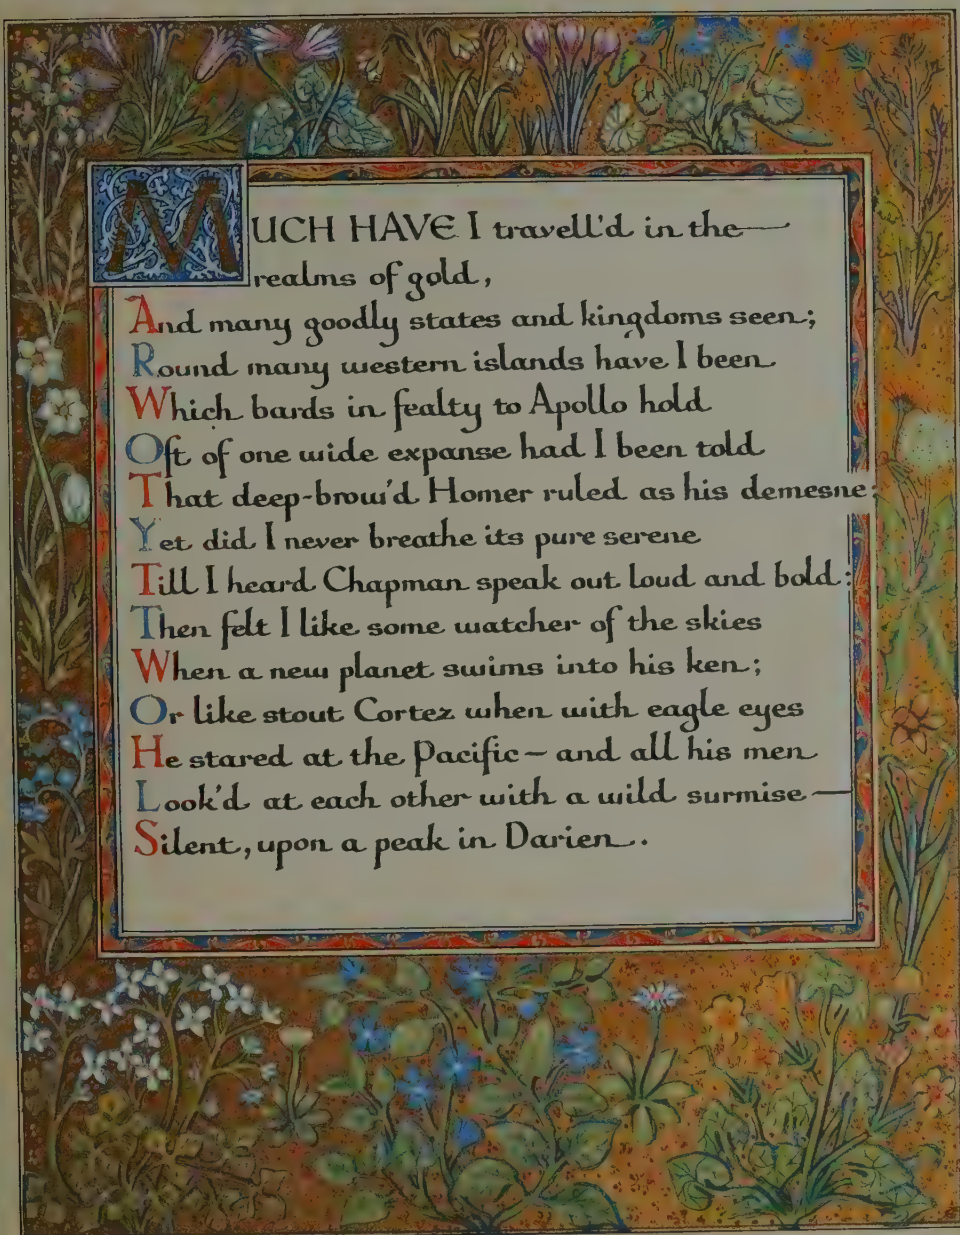 MUCH HAVE I travell'd in the—
realms of gold,
And many goodly states and kingdoms seen;
Round many western islands have I been
Which bards in fealty to Apollo hold
Oft of one wide expanse had I been told
That deep-brow'd Homer ruled as his demesne:
Yet did I never breathe its pure serene
Till I heard Chapman speak out loud and bold:
Then felt I like some watcher of the skies
When a new planet swims into his ken;
Or like stout Cortez when with eagle eyes
He stared at the Pacific — and all his men
Look'd at each other with a wild surmise —
Silent, upon a peak in Darien.